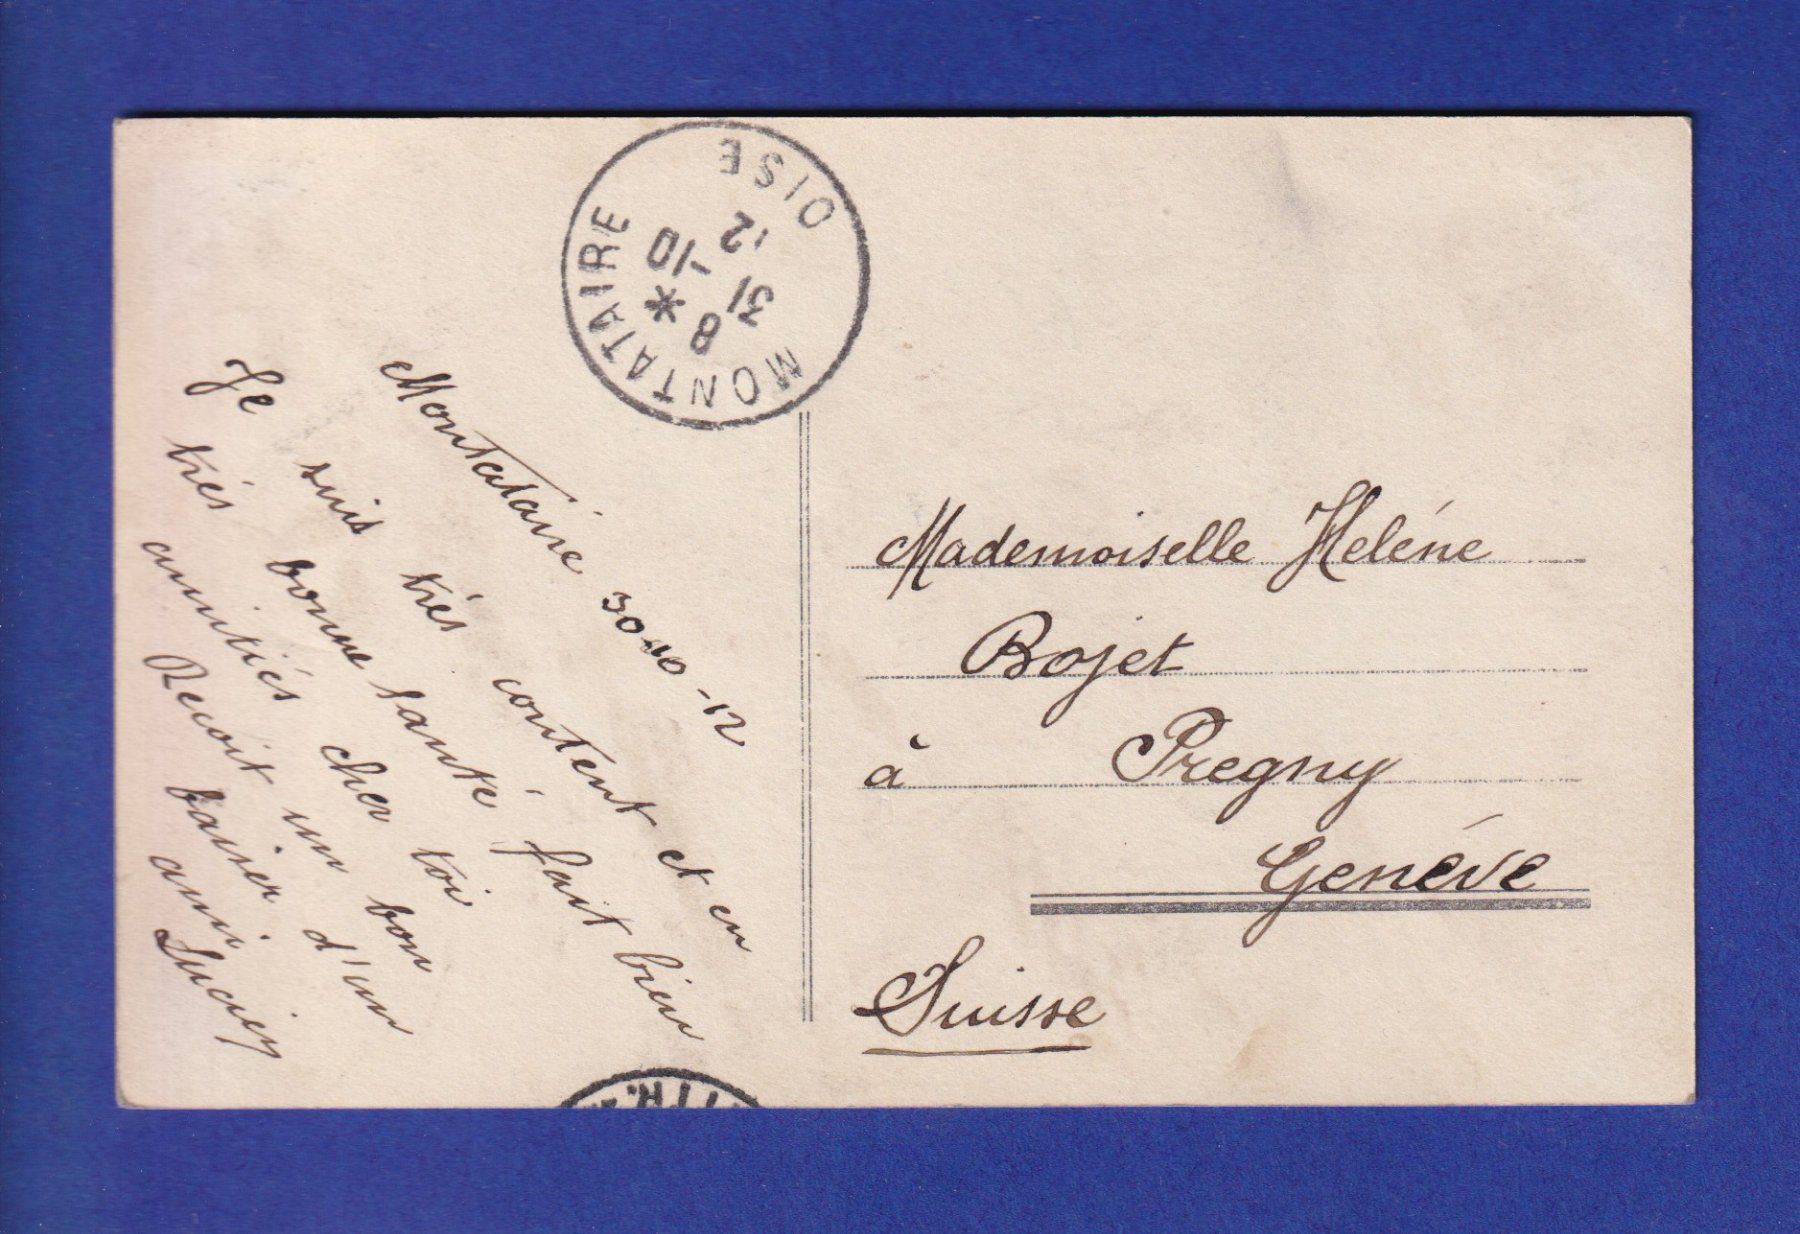 MONTATAIRE
OISE
8 *
31 -10
12
Montataire 30-10-12
Je suis trés content et en
trés bonne santé, fait bien
amitiés cher toi
Recoit un bon
baiser d'un
ami
Lucien
Mademoiselle Heléne
Bojet
à Pregny
Genéve
Suisse